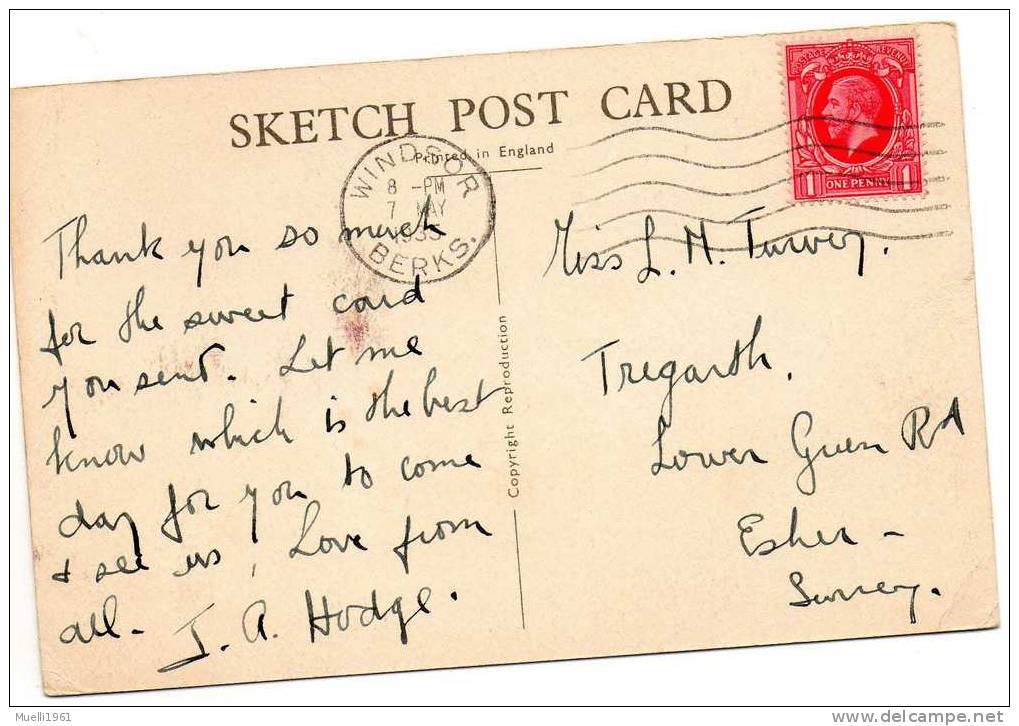 SKETCH POST CARD
Printed in England
WINDSOR
8 - PM
7 MAY
BERKS.
POSTAGE REVENUE
1 ONE PENNY 1
Thank you so much
for the sweet card
you send. Let me
know which is the best
day for you to come
& see us, Love from
all - J. A. Hodge.
Copyright Reproduction
Miss L. M. Turvey.
Tregarth,
Lower Green Rd
Esher -
Surrey.
Muelli1961
www.delcampe.net